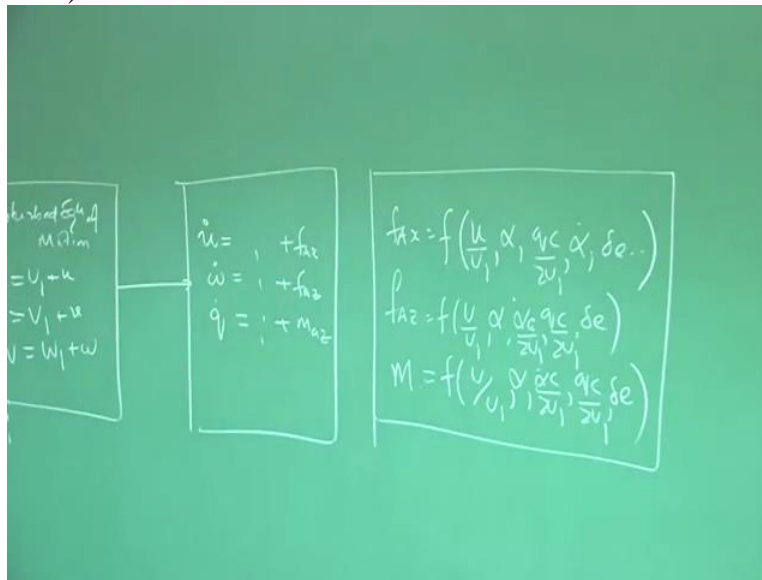 Perturbed Eqn of
Motion
= U₁ + u
= V₁ + v
V = W₁ + w
u̇ = , + fax
ẇ = ¦ + faz
q̇ = ¦ + maz
fAx = f(u/U₁, α, qc/2U₁, α̇, δe..)
fAz = f(u/U₁, α, α̇c/2U₁, qc/2U₁, δe)
M = f(u/U₁, α, α̇c/2U₁, qc/2U₁, δe)